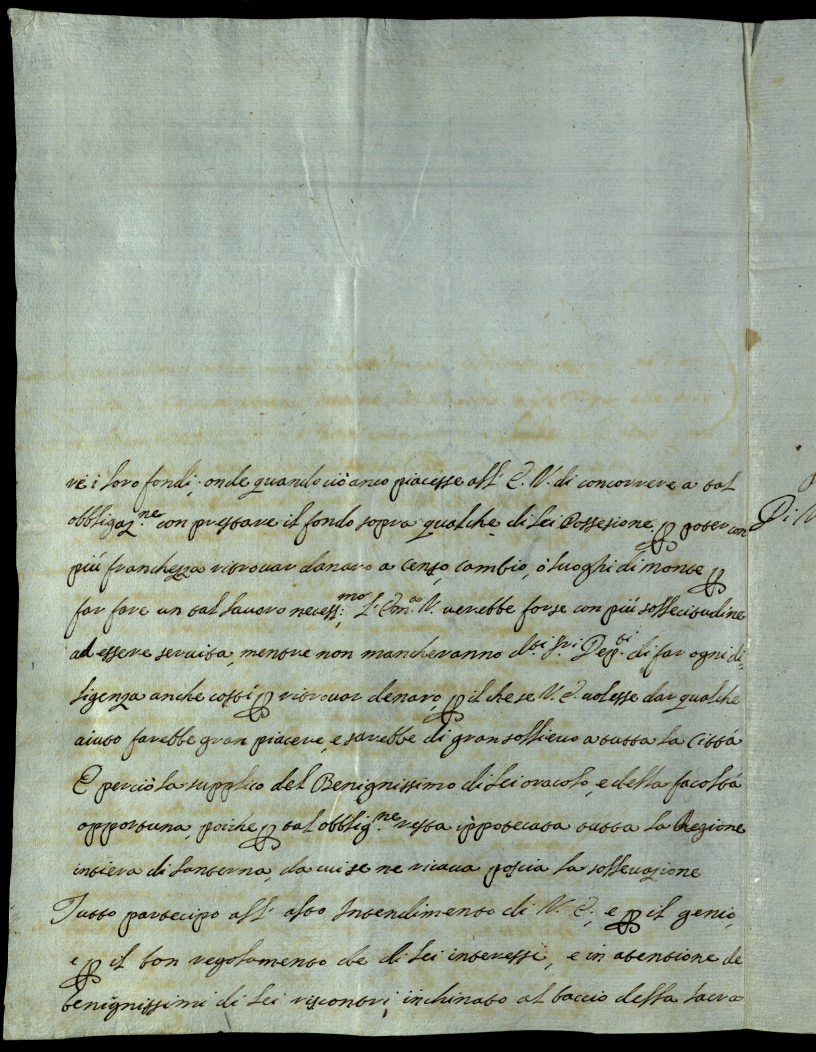 re i loro fondi; onde quando ciò anco piacesse all' E. V. di concorrere a tal
obbligaz.ne con prestare il fondo sopra qualche di lei Possesione, p poter con
più franchezza ritrovar danaro a censo, cambio, ò luoghi di monte p
far fare un tal lavoro necess:mo L'Em.a V. verebbe forse con più sollecitudine
ad essere servita, mentre non mancheranno d.ti Sri Dep.ti di far ogni di-
ligenza anche costì p ritrovar denaro, p il che se V. E. volesse dar qualche
aiuto farebbe gran piacere, e sarebbe di gran sollievo a tutta la Città
E perciò la supplico del Benignissimo di lei oracolo, e della facoltà
opportuna, poiche p tal obblig.ne resta ippotecata tutta la Regione
intiera di Santerna, da cui se ne ricava poscia la sollevazione
Tutto partecipo all' alto Intendimento di V. E; e p il genio,
e p il bon regolamento de di lei interessi, e in atensione de
benignissimi di lei riscontri, inchinato al baccio della sacra
Di V